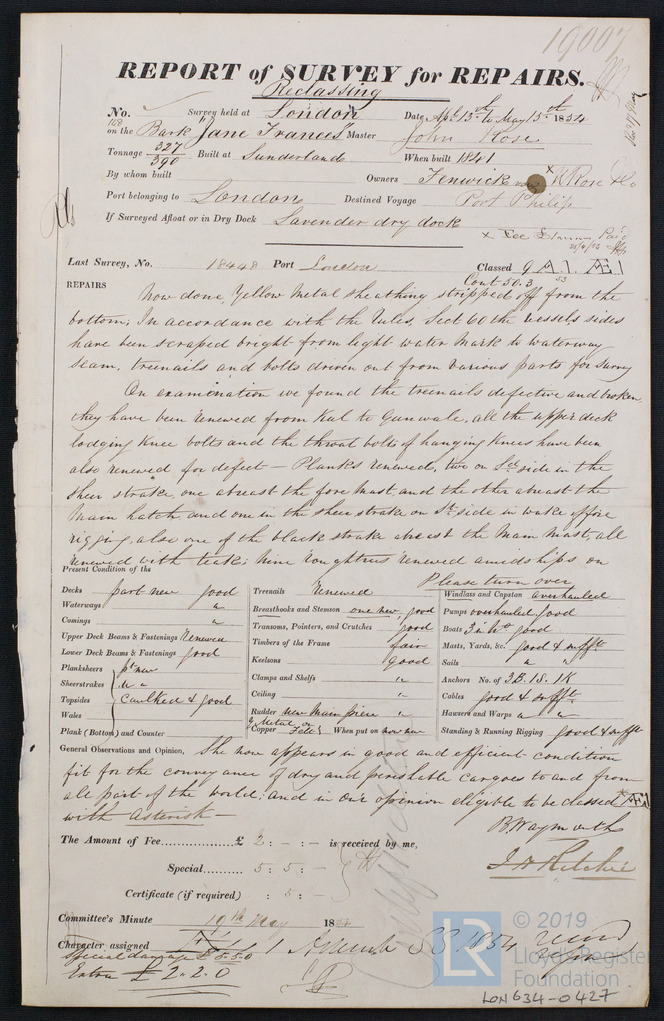 19007
REPORT of SURVEY for REPAIRS.
Reclassing
No. 168 Survey held at London Date, Apl 13th to May 15th 1854
on the Bark Jane Frances Master John Rose
Tonnage 327 / 390 Built at Sunderland When built 1841
By whom built Owners Fenwick x R Rose & Co
Port belonging to London Destined Voyage Port Philip
If Surveyed Afloat or in Dry Dock Lavender dry dock
Last Survey, No. 18448 Port London Classed 9 A.1. Æ1
Cont 50.3
53
REPAIRS Now done, Yellow Metal sheathing stripped off from the
bottom; In accordance with the Rules, Sect 60 the vessels sides
have been scraped bright from light water mark to waterway
seam, treenails and bolts driven out from various parts for survey
On examination we found the treenails defective and broken
they have been renewed from Keel to Gunwale, all the upper deck
lodging Knee bolts and the throat bolts of hanging Knees have been
also renewed for defect — Planks renewed, two on Sd side in the
sheer strake, one abreast the fore Mast, and the other abreast the
Main hatch and one in the sheer strake on St side in wake of fore
rigging also one of the black strake abreast the Main Mast, all
renewed with teak; Nine roughtrees renewed amidships on
Please turn over
Present Condition of the
Decks part new good
Waterways "
Comings "
Upper Deck Beams & Fastenings Renewed
Lower Deck Beams & Fastenings good
Planksheers pt new
Sheerstrakes
Topsides Caulked & good
Wales
Plank (Bottom) and Counter
Treenails Renewed
Breasthooks and Stemson one new, good
Transoms, Pointers, and Crutches good
Timbers of the Frame fair
Keelsons Good
Clamps and Shelfs "
Ceiling "
Rudder New Main piece "
Y Metal on
Copper Felt When put on now new
Windlass and Capstan overhauled
Pumps overhauled good
Boats 3 in No good
Masts, Yards, &c. good & sufft
Sails " "
Anchors No. of 3B. 1S. 1K
Cables good & sufft
Hawsers and Warps " "
Standing & Running Rigging good & sufft
General Observations and Opinion, She now appears in good and efficient condition
fit for the conveyance of dry and perishable cargoes to and from
all part of the world; and in our opinion eligible to be classed *Æ1
with asterisk —
B Waymouth
J H Ritchie
The Amount of Fee £ 2 : - : - is received by me,
Special 5 : 5 : -
Certificate (if required) : 5 : -
Committee's Minute 19th May 1854
Character assigned
Special damage £ 5.5.0
Extra £ 2.2.0
© 2019
LR
Lloyd's Register
Foundation
LON634-0427